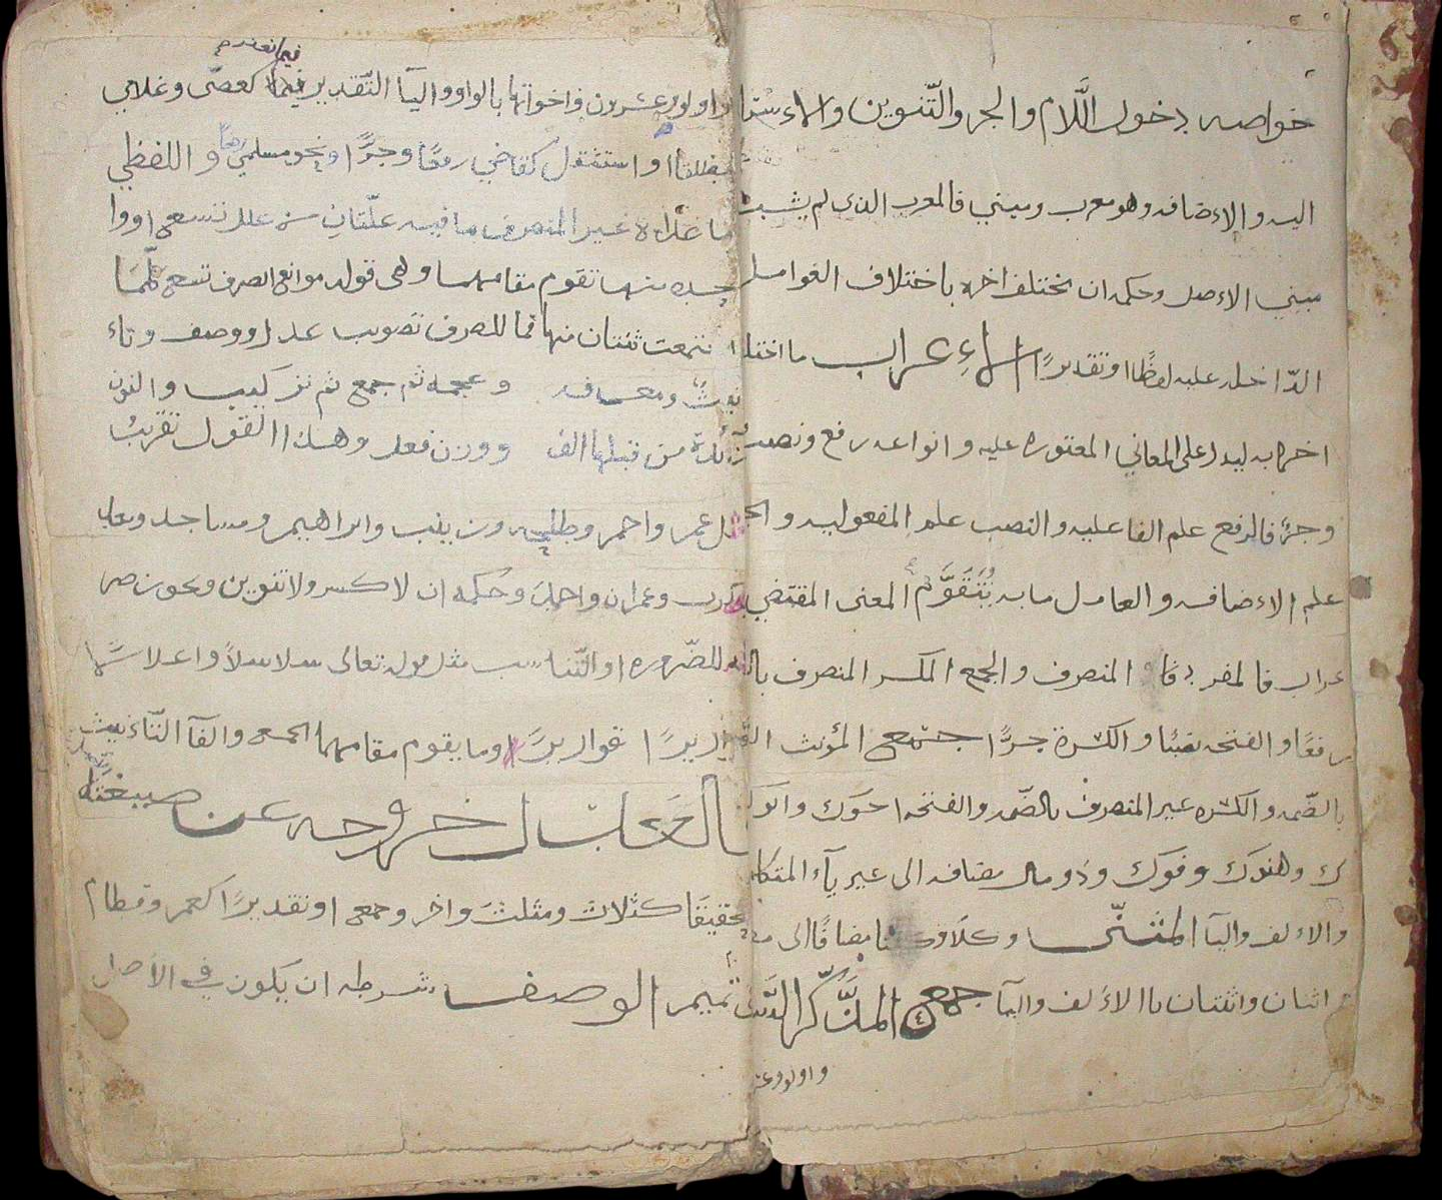 خواصه دخول اللَّام والجر والتّنوين والاءسنا
اليه والإءضافه وهو معرب ومبني فالمعرب الذى لم يشبه
مبني الاءصل وحكمه ان يختلف اخره باختلاف العوامل
الدّاخله عليه لفظًا او تقديرًا الاءِعراب ما اختلا
اخره به ليدل على المعاني المعتوره عليه وانواعه رفع ونصب
وجرٌ فالرفع علم الفاعليه والنصب علم المفعوليه والجر
علم الاءضافه والعامل ما به يُتَقَوَّم المعنى المقتضي
عراب فالمفرد المنصرف والجمع المكسر المنصرف بال
رفعًا والفتحه نصبًا والكسرة جرًّا جمع المؤنث
بالضّمه والكسره غير المنصرف بالضّمه والفتحه اخوك وابوك
ك وهنوك وفوك وذو مال مضافه الى غير يآء المتكلم
والاءلف واليآ المثنّى وكلا مضافًا الى
اثنان واثنتان باالاءَلف واليآ جمع المذَّكّر
واولو وعشر
واولو وعشرون واخواتها بالواو واليآ التّقدير فيما كعصًى وغلامي
فيما تعذر
او استثقل كقاضي رفعًا وجرًّا ونحو مسلمي رفعًا واللفظي
ما عداه غير المنصرف ما فيه علّتانِ من علل تسعه او وا
حده منها تقوم مقامهما وهى قوله موانع الصرف تسع كلّما
اجتمعت ثنتان منها فما للصرف تصويب عدل ووصف وتاء
نيثٌ ومعرفه وعجمه ثم جمع ثم تركيب والنون
زائدة من قبلها الف ووزن فعل وهذا القول تقريبُ
مثل عمر واحمر وطلحه وزينب وابراهيم ومساجد ومعد
يكرب وعمران واحمدَ وحُكمه ان لا كسر ولا تنوين ويجوز صر
فه للضّروره او التّناسب مثل قوله تعالى سلاسلاً واغلالاً
قواريرًا قواريرًا وما يقوم مقامهما الجمع والفآ التّاءنيث
فالعدل خروجه عن صيغته
تحقيقًا كثلاث ومثلثَ واخر وجمع او تقديرًا كعمر وقطام
تميم الوصف شرطه ان يكون في الأصل